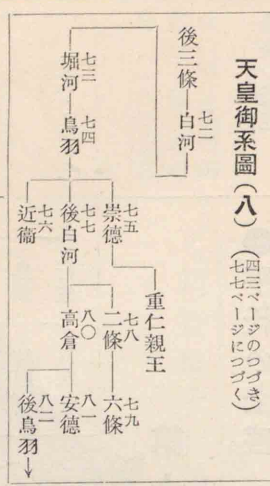 天皇御系圖(八)
(四三ページのつづき)
(七七ページにつづく)
後三條
七二
白河
七三
堀河
七四
鳥羽
七五
崇德
重仁親王
七七
後白河
七六
近衞
七八
二條
七九
六條
八〇
高倉
八一
安德
八二
後鳥羽